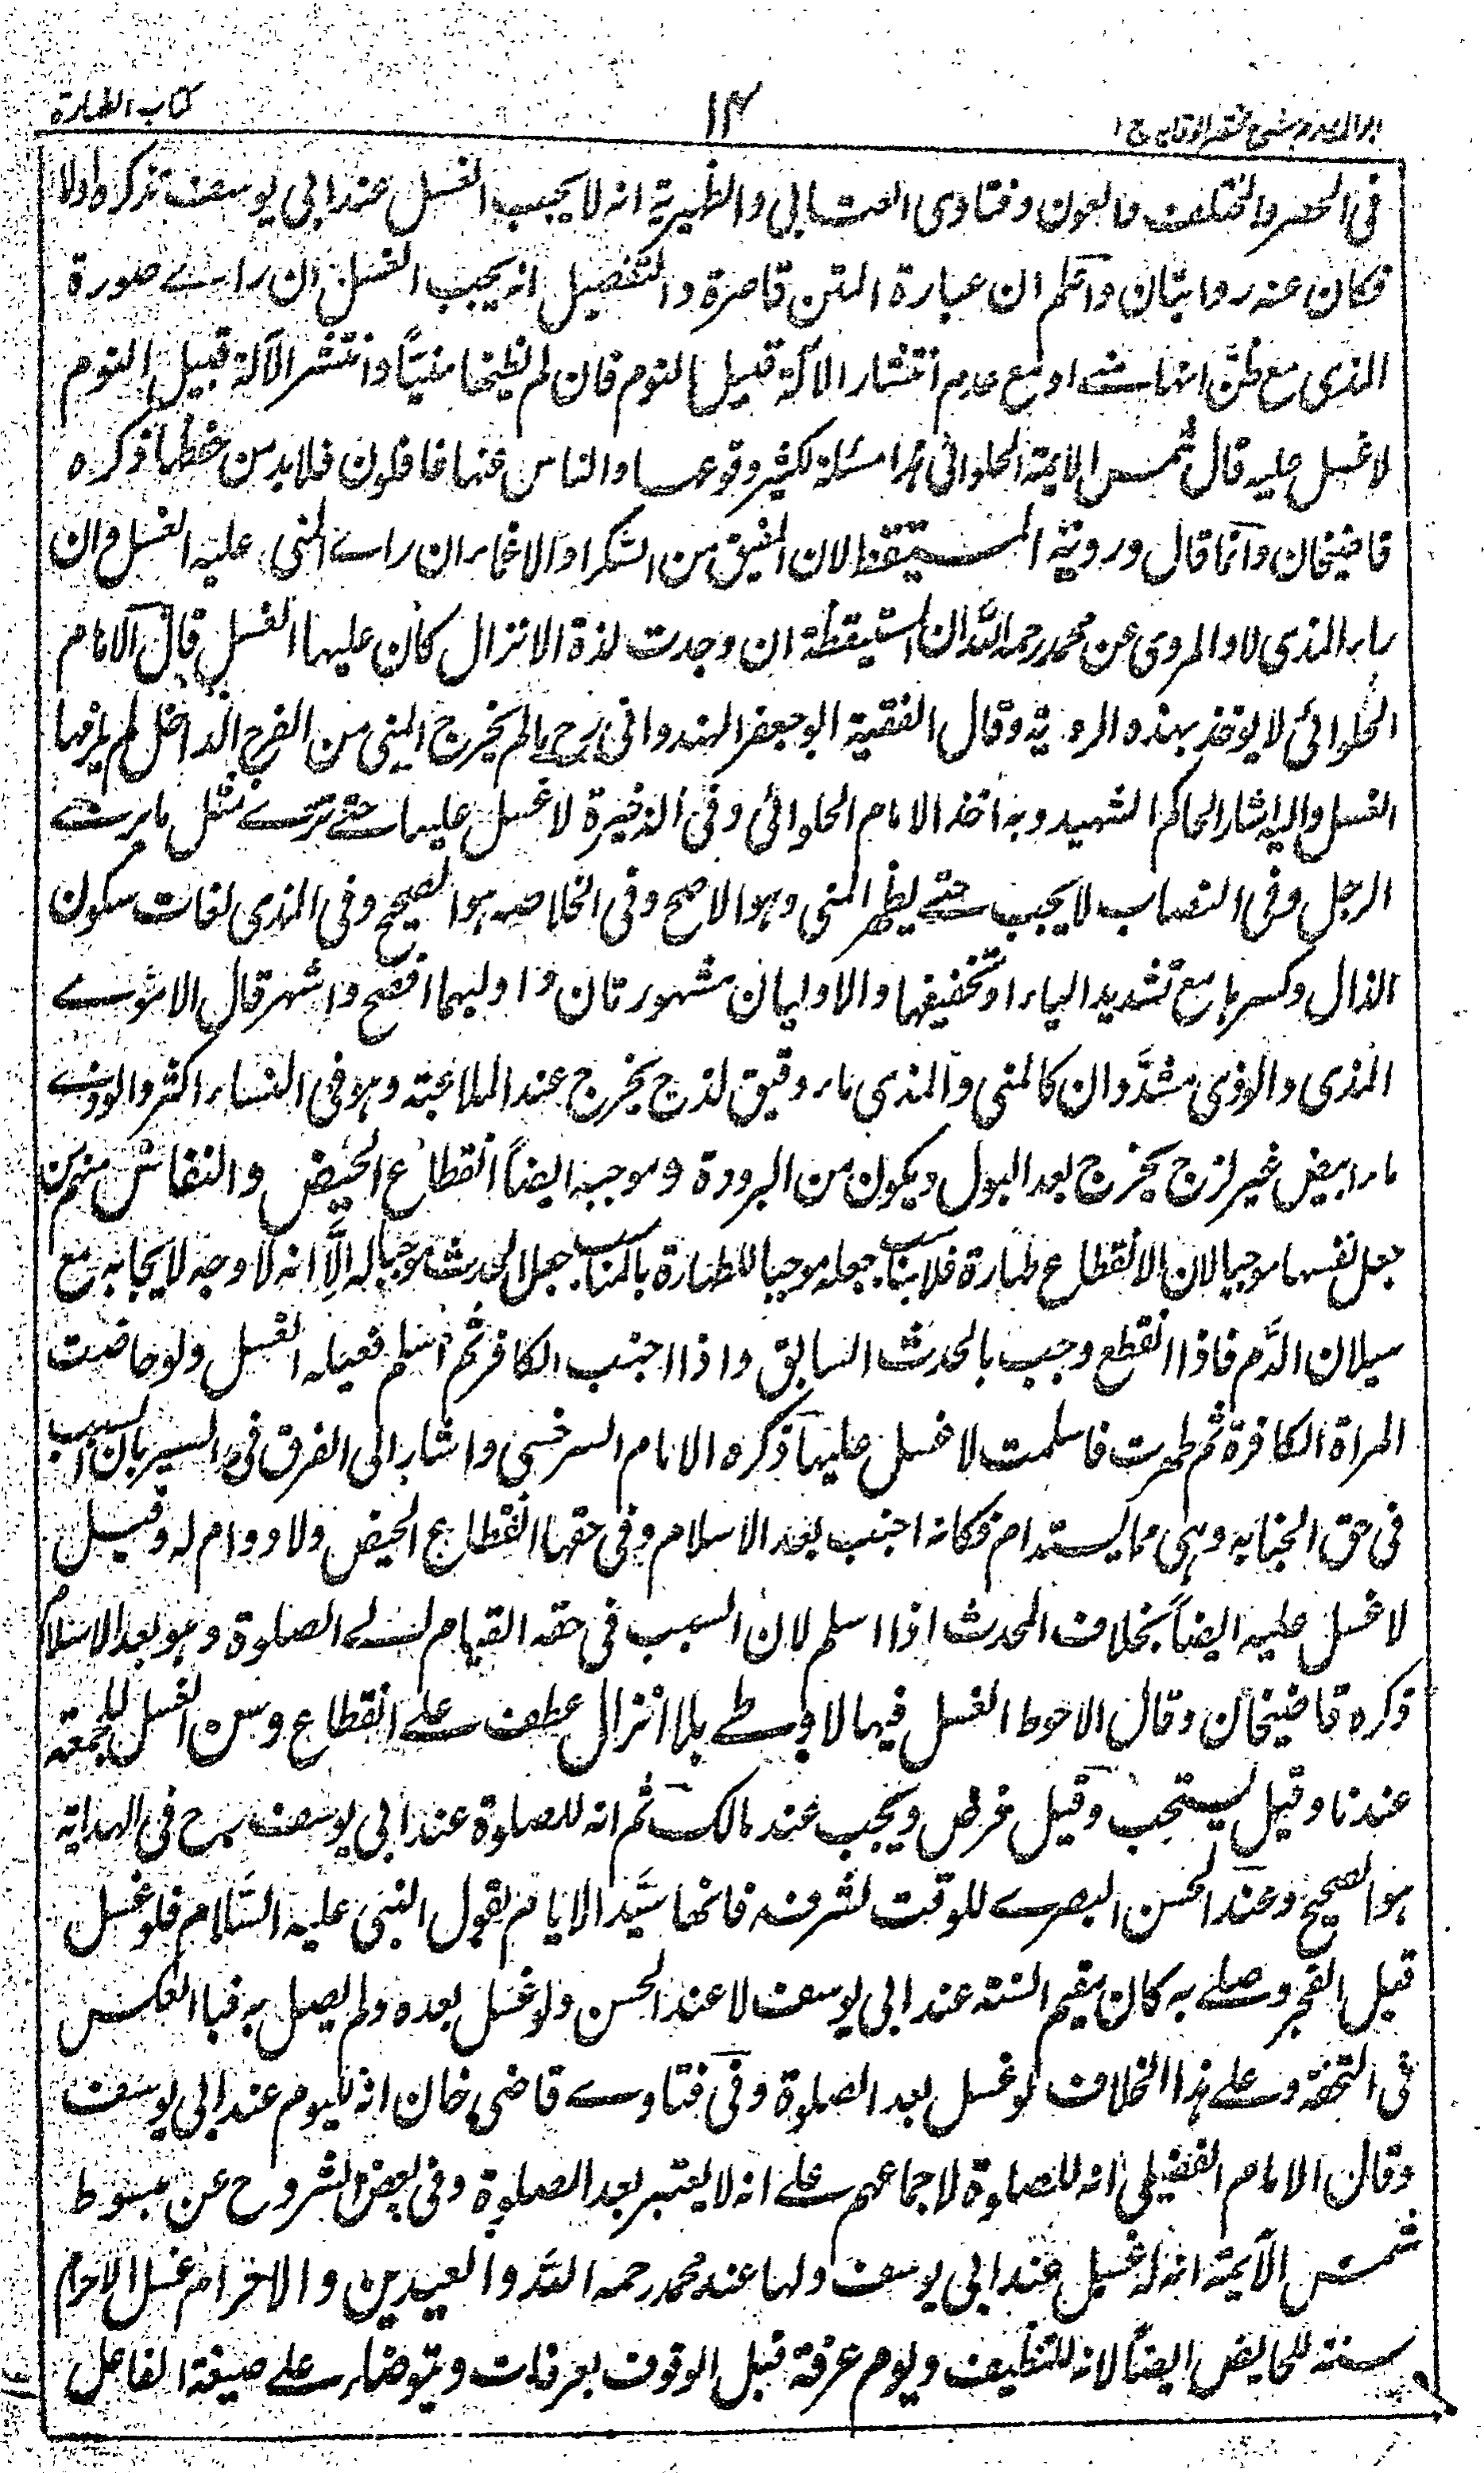 كتاب الطهارة
١٤
ابو المكارم شرح مختصر الوقاية ج ١
فى الحصر والمختلف والعون وفتاوى العتابى والظهيرية انه لا يجب الغسل عند ابى يوسف تذكره اولا
فكان عنه روايتان واعلم ان عبارة المتن قاصرة والتفصيل انه يجب الغسل ان راے صورة
المذى مع ظن انها منے او مع عدم انتشار الآلة قبيل النوم فان لم يظنها منيّاً وانتشر الآلة قبيل النوم
لا غسل عليه قال شمس الايمة الحلوائى هذا مسئلة يكثير وقوعها والناس عنها غافلون فلا بد من حفظها ذكره
قاضيخان وانما قال ورويته المستيقظ لان المفيق من السكر او الاغماء ان راے المنى عليه الغسل وان
راى المذى لا والمروى عن محمد رحمه الله ان المستيقظة ان وجدت لذة الانزال كان عليها الغسل قال الامام
الحلوائى لا يوخذ بهذه الرواية وقال الفقيه ابو جعفر الهندوانى رح ما لم يخرج المنى من الفرج الداخل لم يلزمها
الغسل واليه اشار الحاكم الشهيد وبه اخذ الامام الحلوائى وفى الذخيرة لا غسل عليها حتے ترے مثل ما يرے
الرجل وفى النصاب لا يجب حتے يظهر المنى وهو الاصح وفى الخلاصه هو الصحيح وفى المذى لغات سكون
الذال وكسرها مع تشديد الياء او تخفيفها والاوليان مشهورتان واوليهما افصح واشهر قال الاموے
المذى والودى مشدّدان كالمنى والمذى ماء رقيق لزج يخرج عند الملاعبة وهو فى النساء اكثر والودے
ماء ابيض غير لزج يخرج بعد البول ويكون من البرودة وموجبه ايضاً انقطاع الحيض والنفاس منهم من
جعل نفسها موجبا لان الانقطاع طهارة فلا يناسب جعله موجبا للطهارة بل المناسب جعل الحدث موجبا له الّا انه لا وجه لايجابه مع
سيلان الدّم فاذا انقطع وجب بالحدث السابق واذا اجنب الكافر ثم اسلم فعليه الغسل ولو حاضت
المراة الكافرة ثم طهرت فاسلمت لا غسل عليها ذكره الامام السرخسى واشار الى الفرق فى السير بان السبب
فى حق الجنابه وهى مما يستدام فكانه اجنب بعد الاسلام وفى حقها انقطاع الحيض ولا دوام له وقيل
لا غسل عليه ايضاً بخلاف المحدث اذا اسلم لان السبب فى حقه القيام الے الصلوة وهو بعد الاسلام
ذكره قاضيخان وقال الاحوط الغسل فيها لا وطے بلا انزال عطف علے انقطاع وسن الغسل للجمعة
عندنا وقيل يستحب وقيل فرض ويجب عند مالك ثم انه للصلوة عند ابى يوسف رح فى الهداية
هو الصحيح وعند الحسن البصرے للوقت لشرفه فانها سيّد الايام لقول النبى عليه السّلام فلو غسل
قبل الفجر وصلے به كان يقيم السنة عند ابى يوسف لا عند الحسن ولو غسل بعده ولم يصل به فبا العكس
فى التحفة وعلے هذا الخلاف لو غسل بعد الصلوة وفى فتاوے قاضى خان انه لليوم عند ابى يوسف
وقال الامام الفضيلى انه للصلوة لاجماعهم علے انه لا يعتبر بعد الصلوة وفى بعض الشروح عن مبسوط
شمس الآيمة انه له غسل عند ابى يوسف ولها عند محمد رحمه الله والعيدين والاحرام غسل الاحرام
سنة للحايض ايضاً لانه للتنظيف ويوم عرفة قبل الوقوف بعرفات ويتوضاء علے صيغة الفاعل